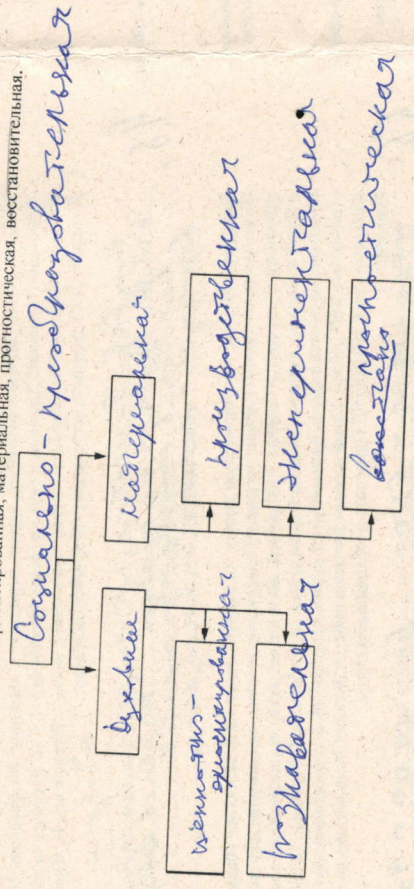 ориентированная, материальная, прогностическая, восстановительная.
Социально - преобразовательная
Духовная
материальная
ценностно-
ориентированная
познавательная
производственная
экспериментальная
прогностическая